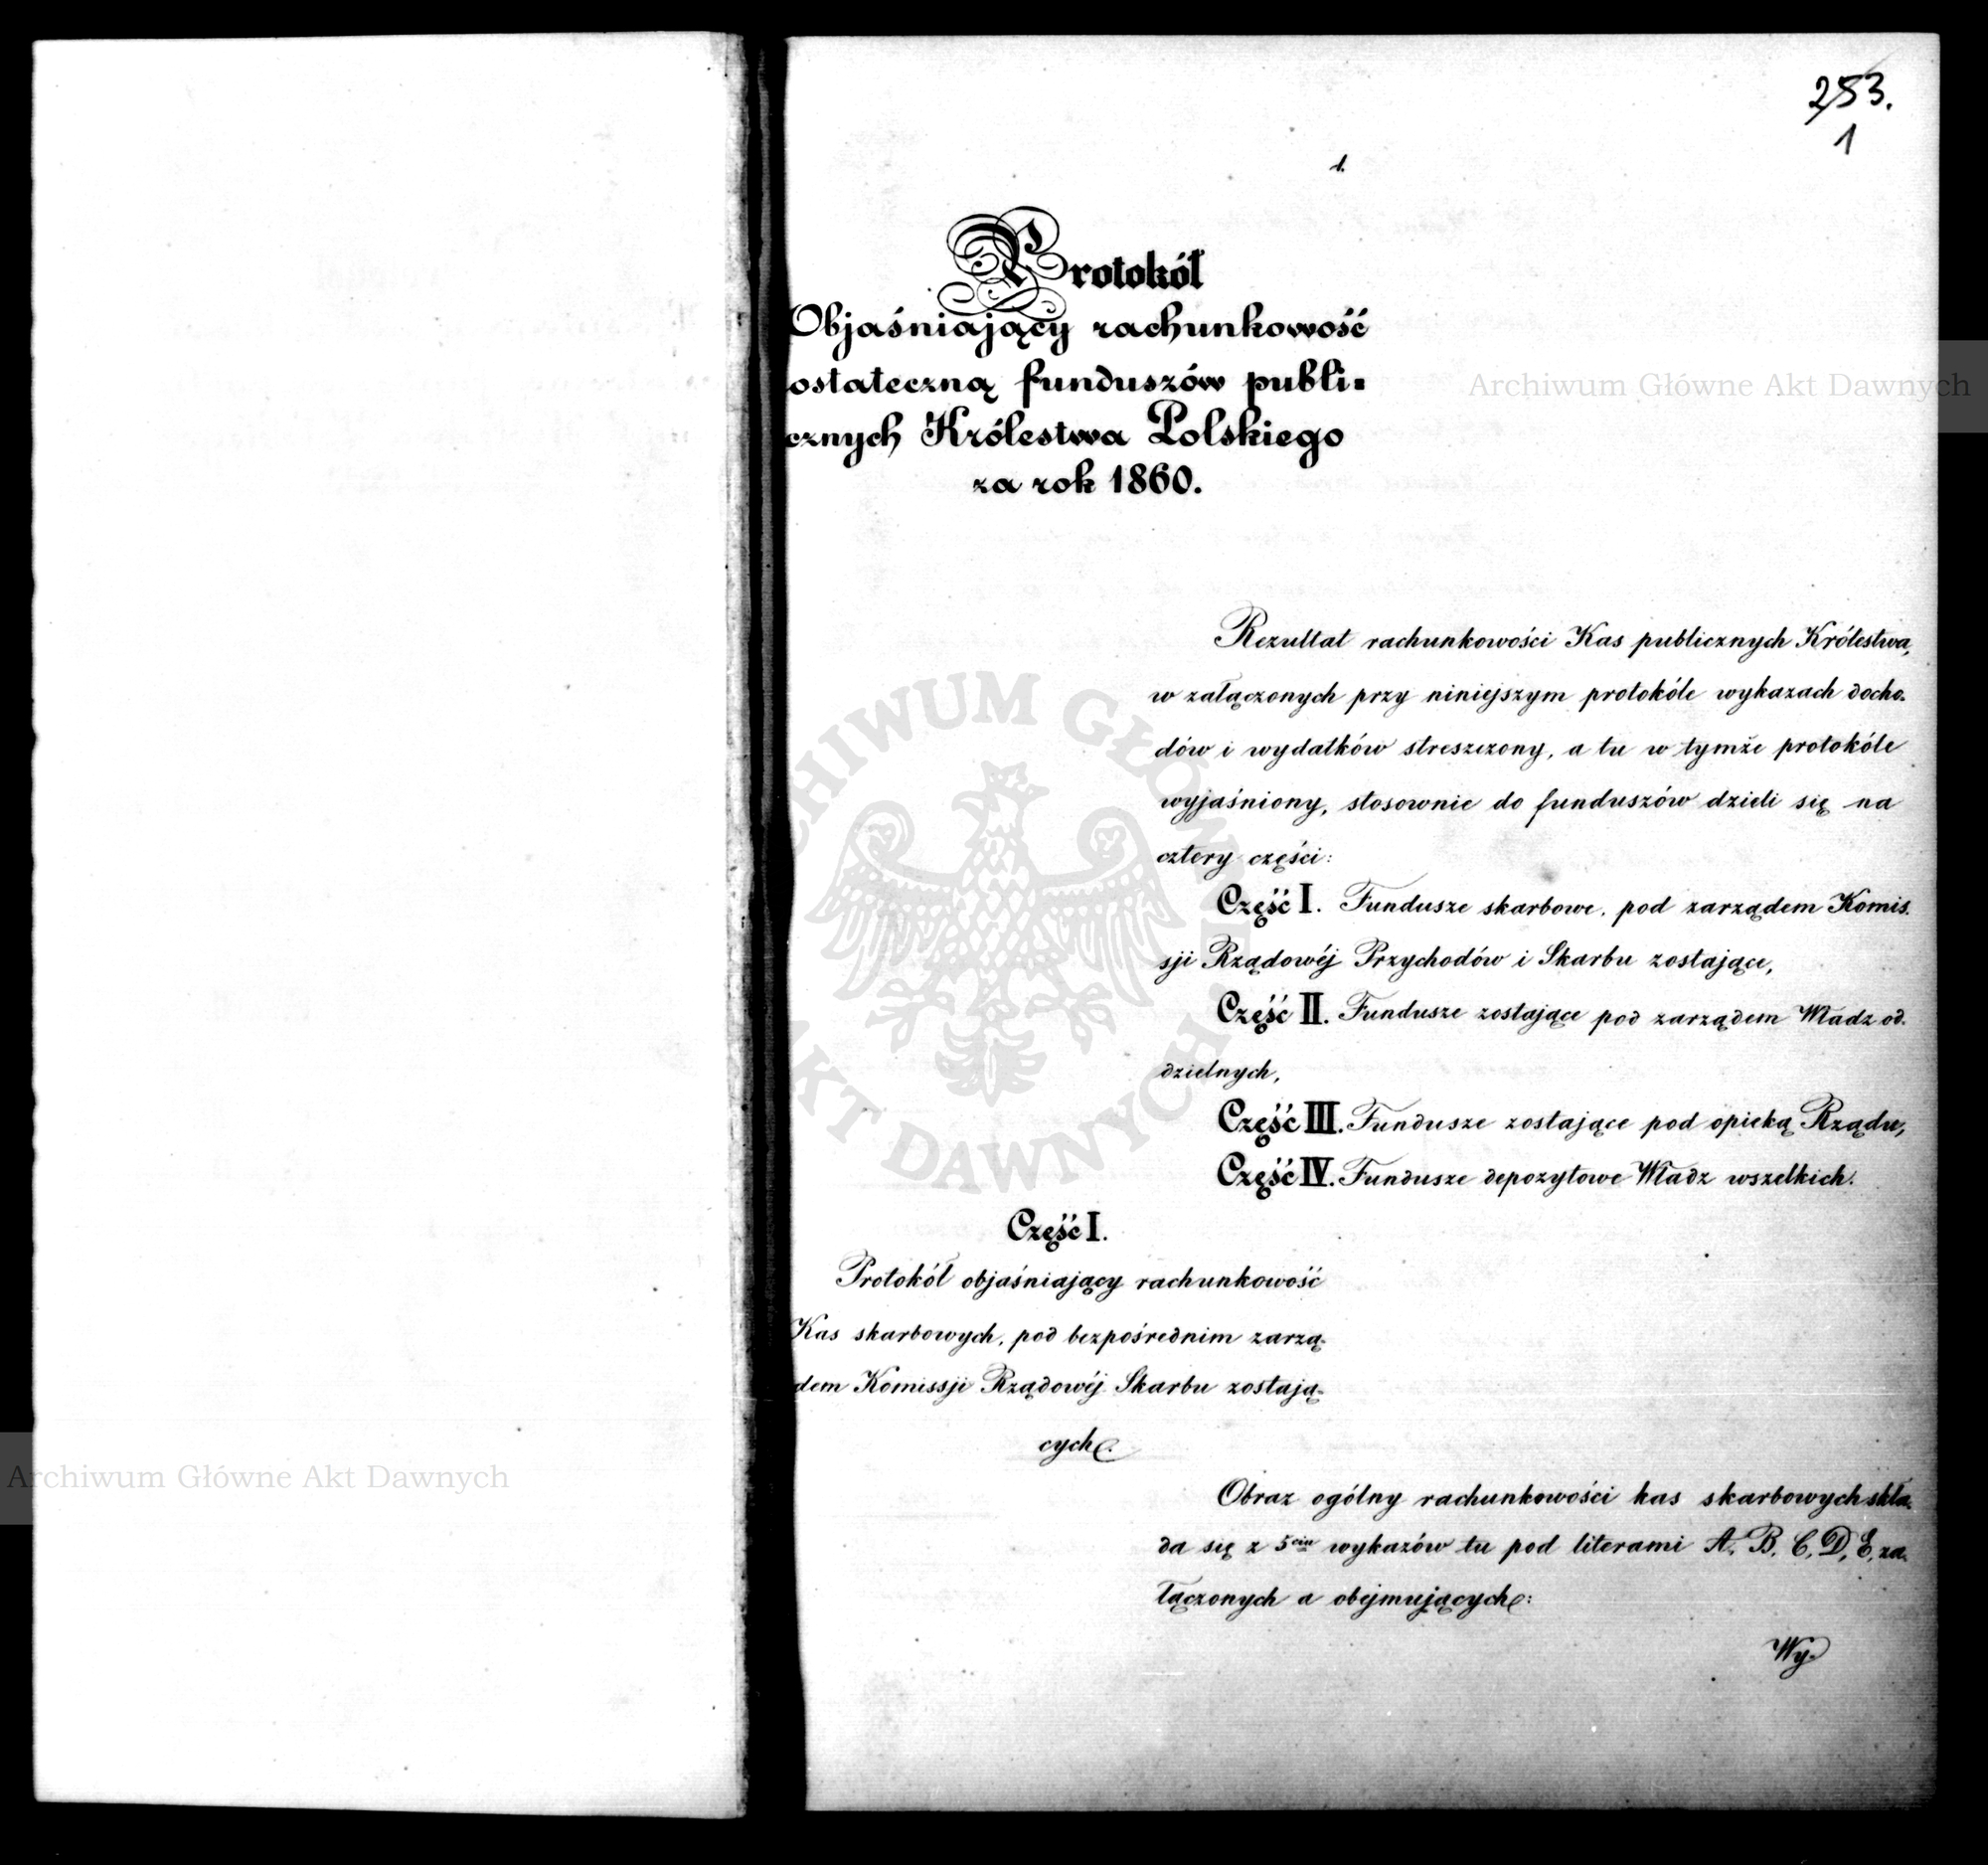 253.
1
1.
Protokół
Objaśniający rachunkowość
ostateczną funduszów publi=
cznych Królestwa Polskiego
za rok 1860.
Rezultat rachunkowości Kas publicznych Królestwa,
w załączonych przy niniejszym protokóle wykazach docho-
dów i wydatków streszczony, a tu w tymże protokóle
wyjaśniony, stosownie do funduszów dzieli się na
cztery części:
Część I. Fundusze skarbowe, pod zarządem Komis-
sji Rządowéj Przychodów i Skarbu zostające,
Część II. Fundusze zostające pod zarządem Władz od-
dzielnych,
Część III. Fundusze zostające pod opieką Rządu,
Część IV. Fundusze depozytowe Władz wszelkich.
Część I.
Protokół objaśniający rachunkowość
Kas skarbowych, pod bezpośrednim zarzą-
dem Komissji Rządowéj Skarbu zostają-
cych.
Obraz ogólny rachunkowości kas skarbowych skła-
da się z 5ciu wykazów tu pod literami A, B, C, D, E, za-
łączonych a obejmujących:
Wy-
Archiwum Główne Akt Dawnych
Archiwum Główne Akt Dawnych
ARCHIWUM GŁÓWNE AKT DAWNYCH